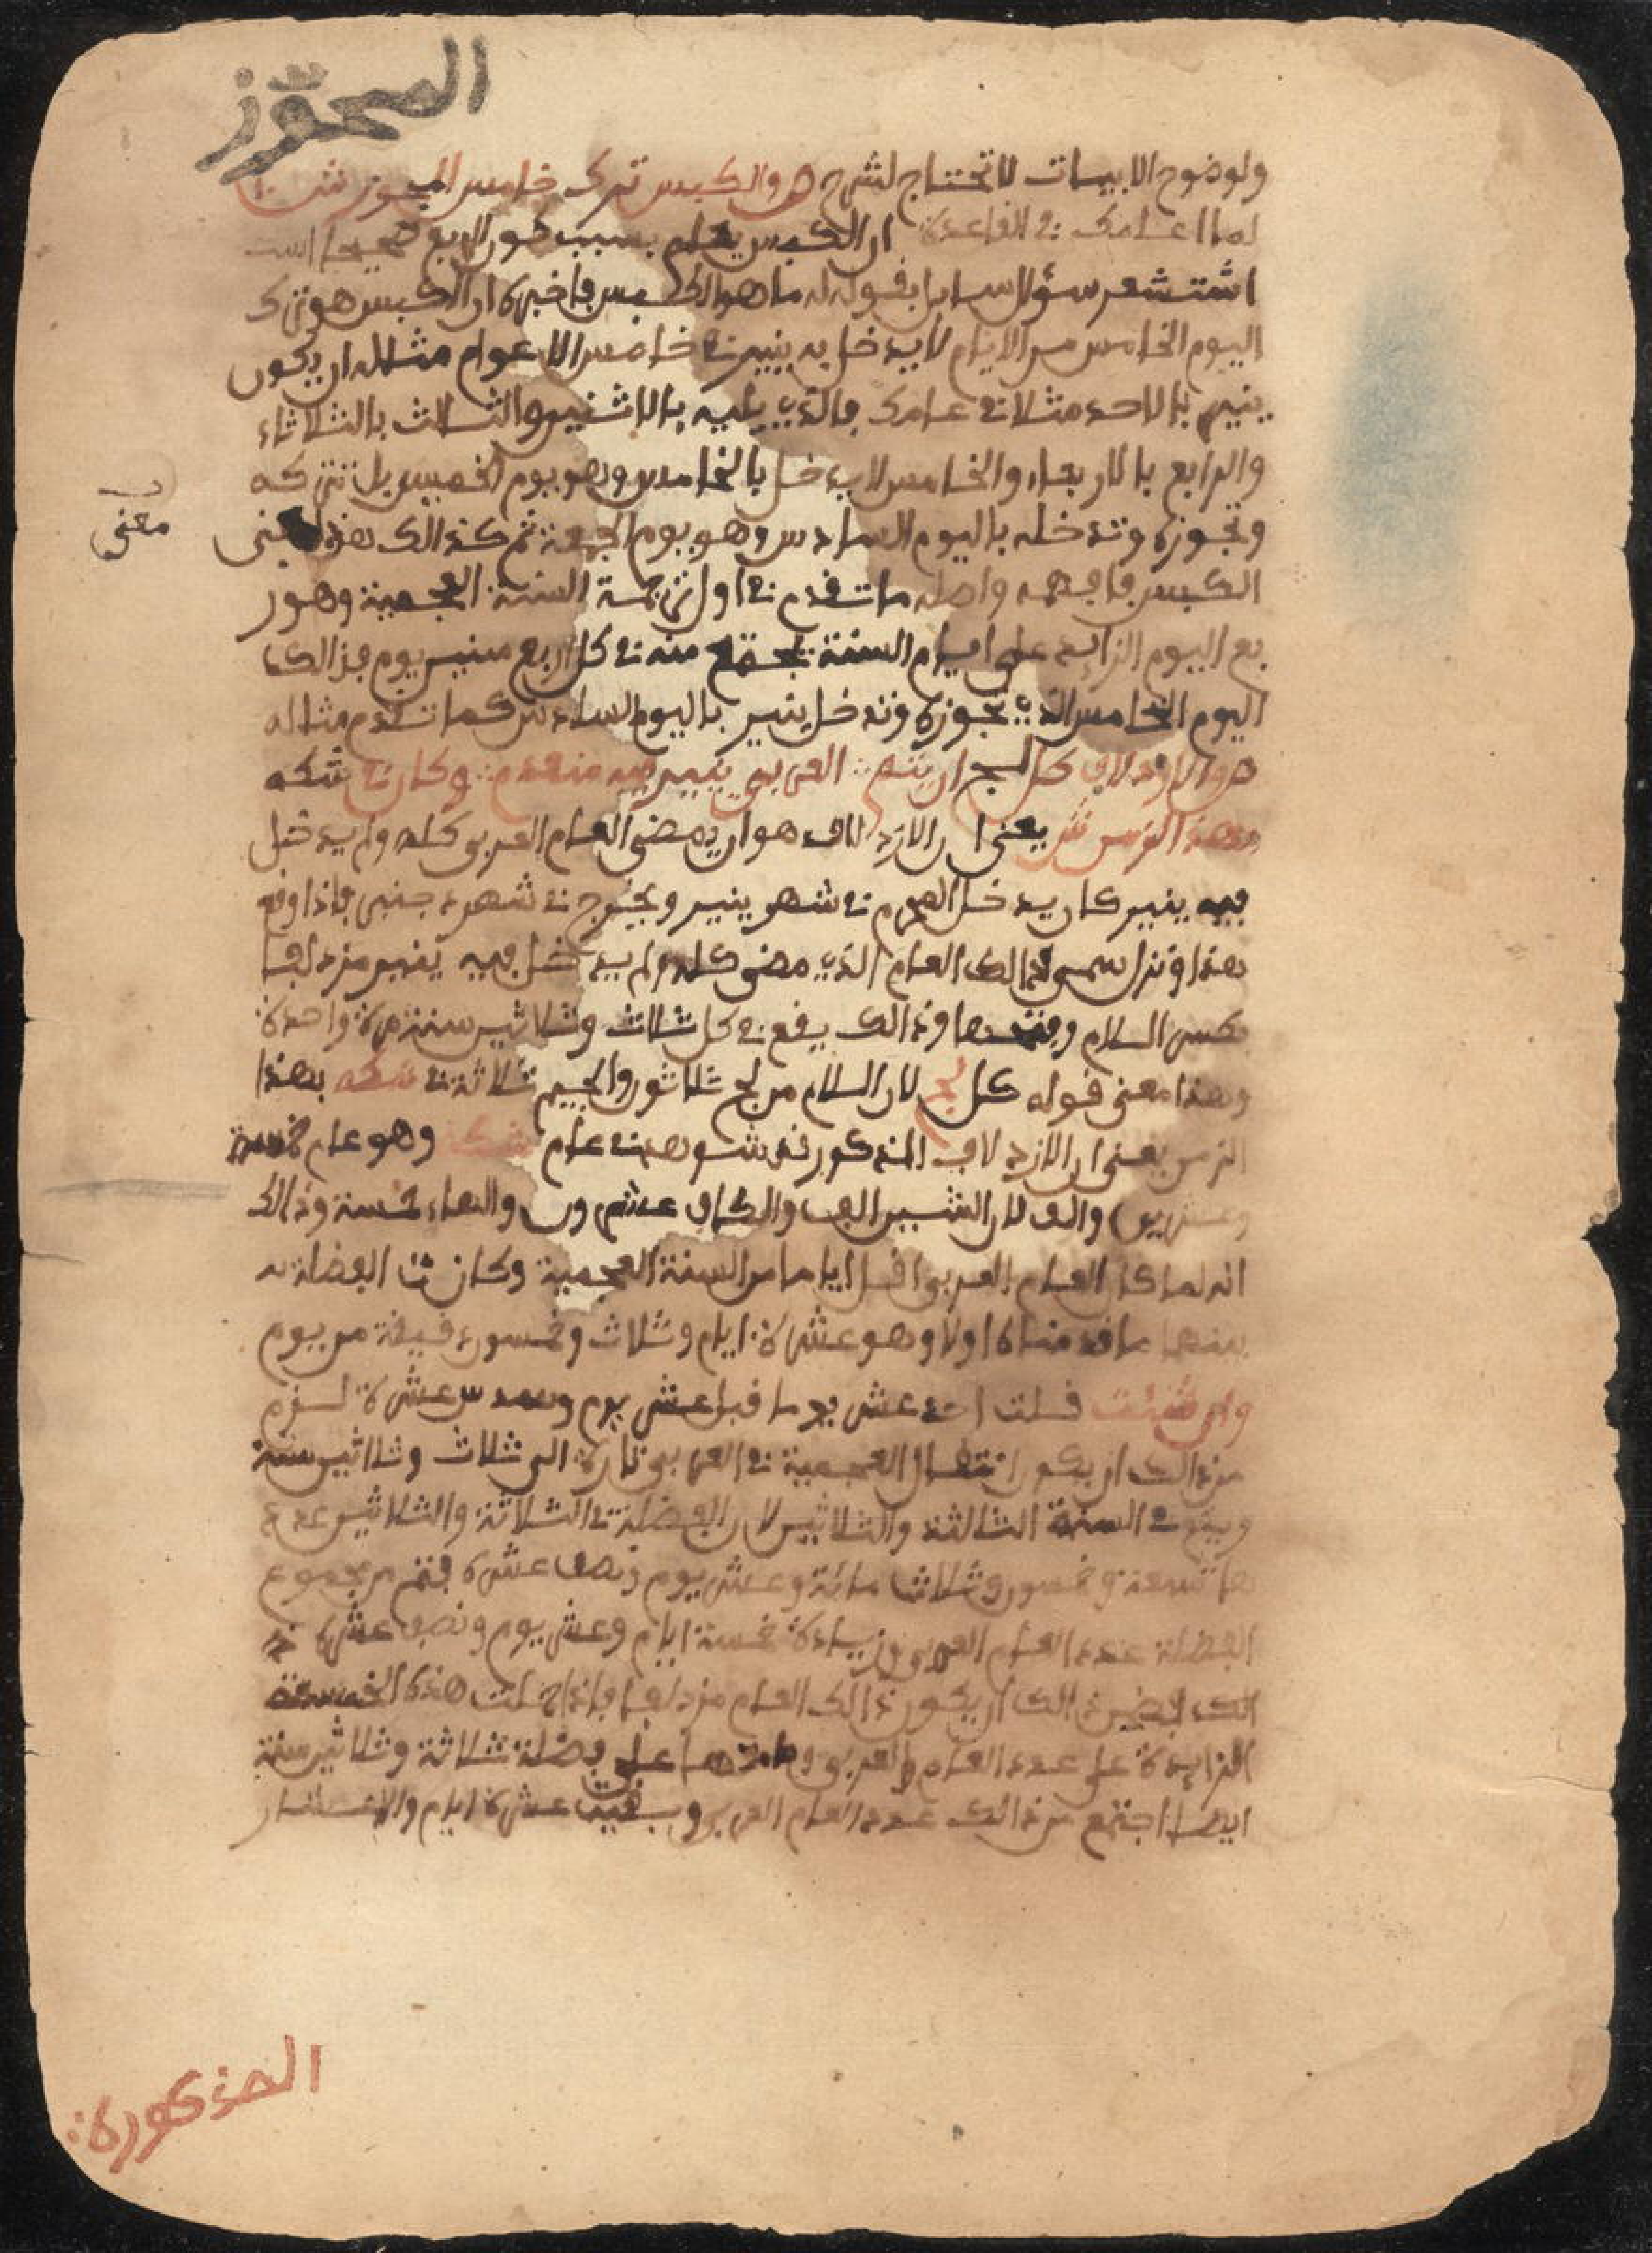 المحوّز
ولوضوح الابيات لا تحتاج لشرح هو والكبس ترك خامس المجوز ش
لما اعلمك في القاعدة ان الكبس يعلم بسبب كور الربع صحيحا
اشتشعر سؤلا سايرا بقوله له ما هو الكبس فاخبره ان الكبس هو ترك
اليوم الخامس من الايام لا يدخل به ينير في خامس الاعوام مثاله ان يكون
ينير بالاحد مثلا في عامك والذي يليه بالاثنين والثالث بالثلاثاء
والرابع بالاربعاء والخامس لا يدخل بالخامس وهو يوم الخميس بل تتركه
وتجوزه وتدخله باليوم السادس وهو يوم الجمعة ثم كذالك هذا معنى
معنى
الكبس فافهمه واصله ما تقدم في اول ترجمة السنة العجمية وهو ر
بع اليوم الزايد على ايام السنة تجتمع منه في كل اربع سنين يوم فذالك
اليوم الخامس الذي تجوزه وتدخل ينير باليوم السادس كما تقدم مثاله
هو والازدلاف كل لجج ان ينصرم العربي ينير فيه منعدم وكان في شكه
بهذا الزمن ش يعني ان الازدلاف هو ان يمضي العام العربي كله ولم يدخل
فيه ينير كان يدخل المحرم في شهر ينير ويخرج في شهر دجنبر فاذا وقع
هذا وتزل سمى ذالك العام الذي مضى كله ولم يدخل فيه ينير مزدلفا
بكسر اللام وفتحها وذالك يقع في كل ثلاث وثلاثين سنة مرة واحدة
وهذا معنى قوله كل لجج لان اللام من لج ثلاثون والجيم ثلاثة في شكه بهذا
الزمن يعني ان الازدلاف المذكور قد شوهد في عام شكه وهو عام خمسة
وعشرين والف لان الشين الف والكاف عشرون والهاء خمسة وذالك
انه لما كان العام العربي اقل اياما من السنة العجمية وكان الفضلة
بينهما ما قدمناه اولا وهو عشرة ايام وثلاث وخمسون دقيقة من يوم
وان شئت قلت احد عشر يوما فبل عشر يوم وسدس عشرة لزم
من ذالك ان يكون انتقال العجمية في العربي تارة الى ثلاث وثلاثين سنة
ويقع في السنة الثالثة والثلاثين لان الفضلة في الثلاثة والثلاثين عدد
ها تسعة وخمسون وثلاث مائة وعشر يوم ونصف عشرة فتم من مجموع
الفضلة عدد العام العربي وزيادة خمسة ايام وعشر يوم ونصف عشرة
الك ان يكون ذالك العام مزدلفا فاذا حملت هذه الخمسة
الزايدة على عدد العام العربي على فضلة ثلاثة وثلاثين سنة
ايضا اجتمع من ذالك عدد العام العربي وبقيت عشرة ايام والاعشار
المذكورة: